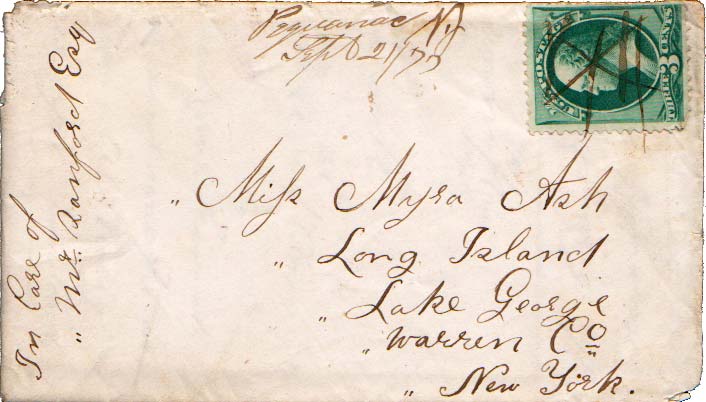 Pequanac NJ
Sept 21/77
U.S. POSTAGE
THREE 3 CENTS
„ Miss Myra Ash
„ Long Island
„ Lake George
„ Warren Co
„ New York.
In Care of
„ Mr. Sanford Esq